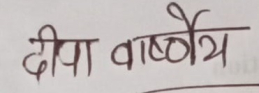 दीपा वार्ष्णेय